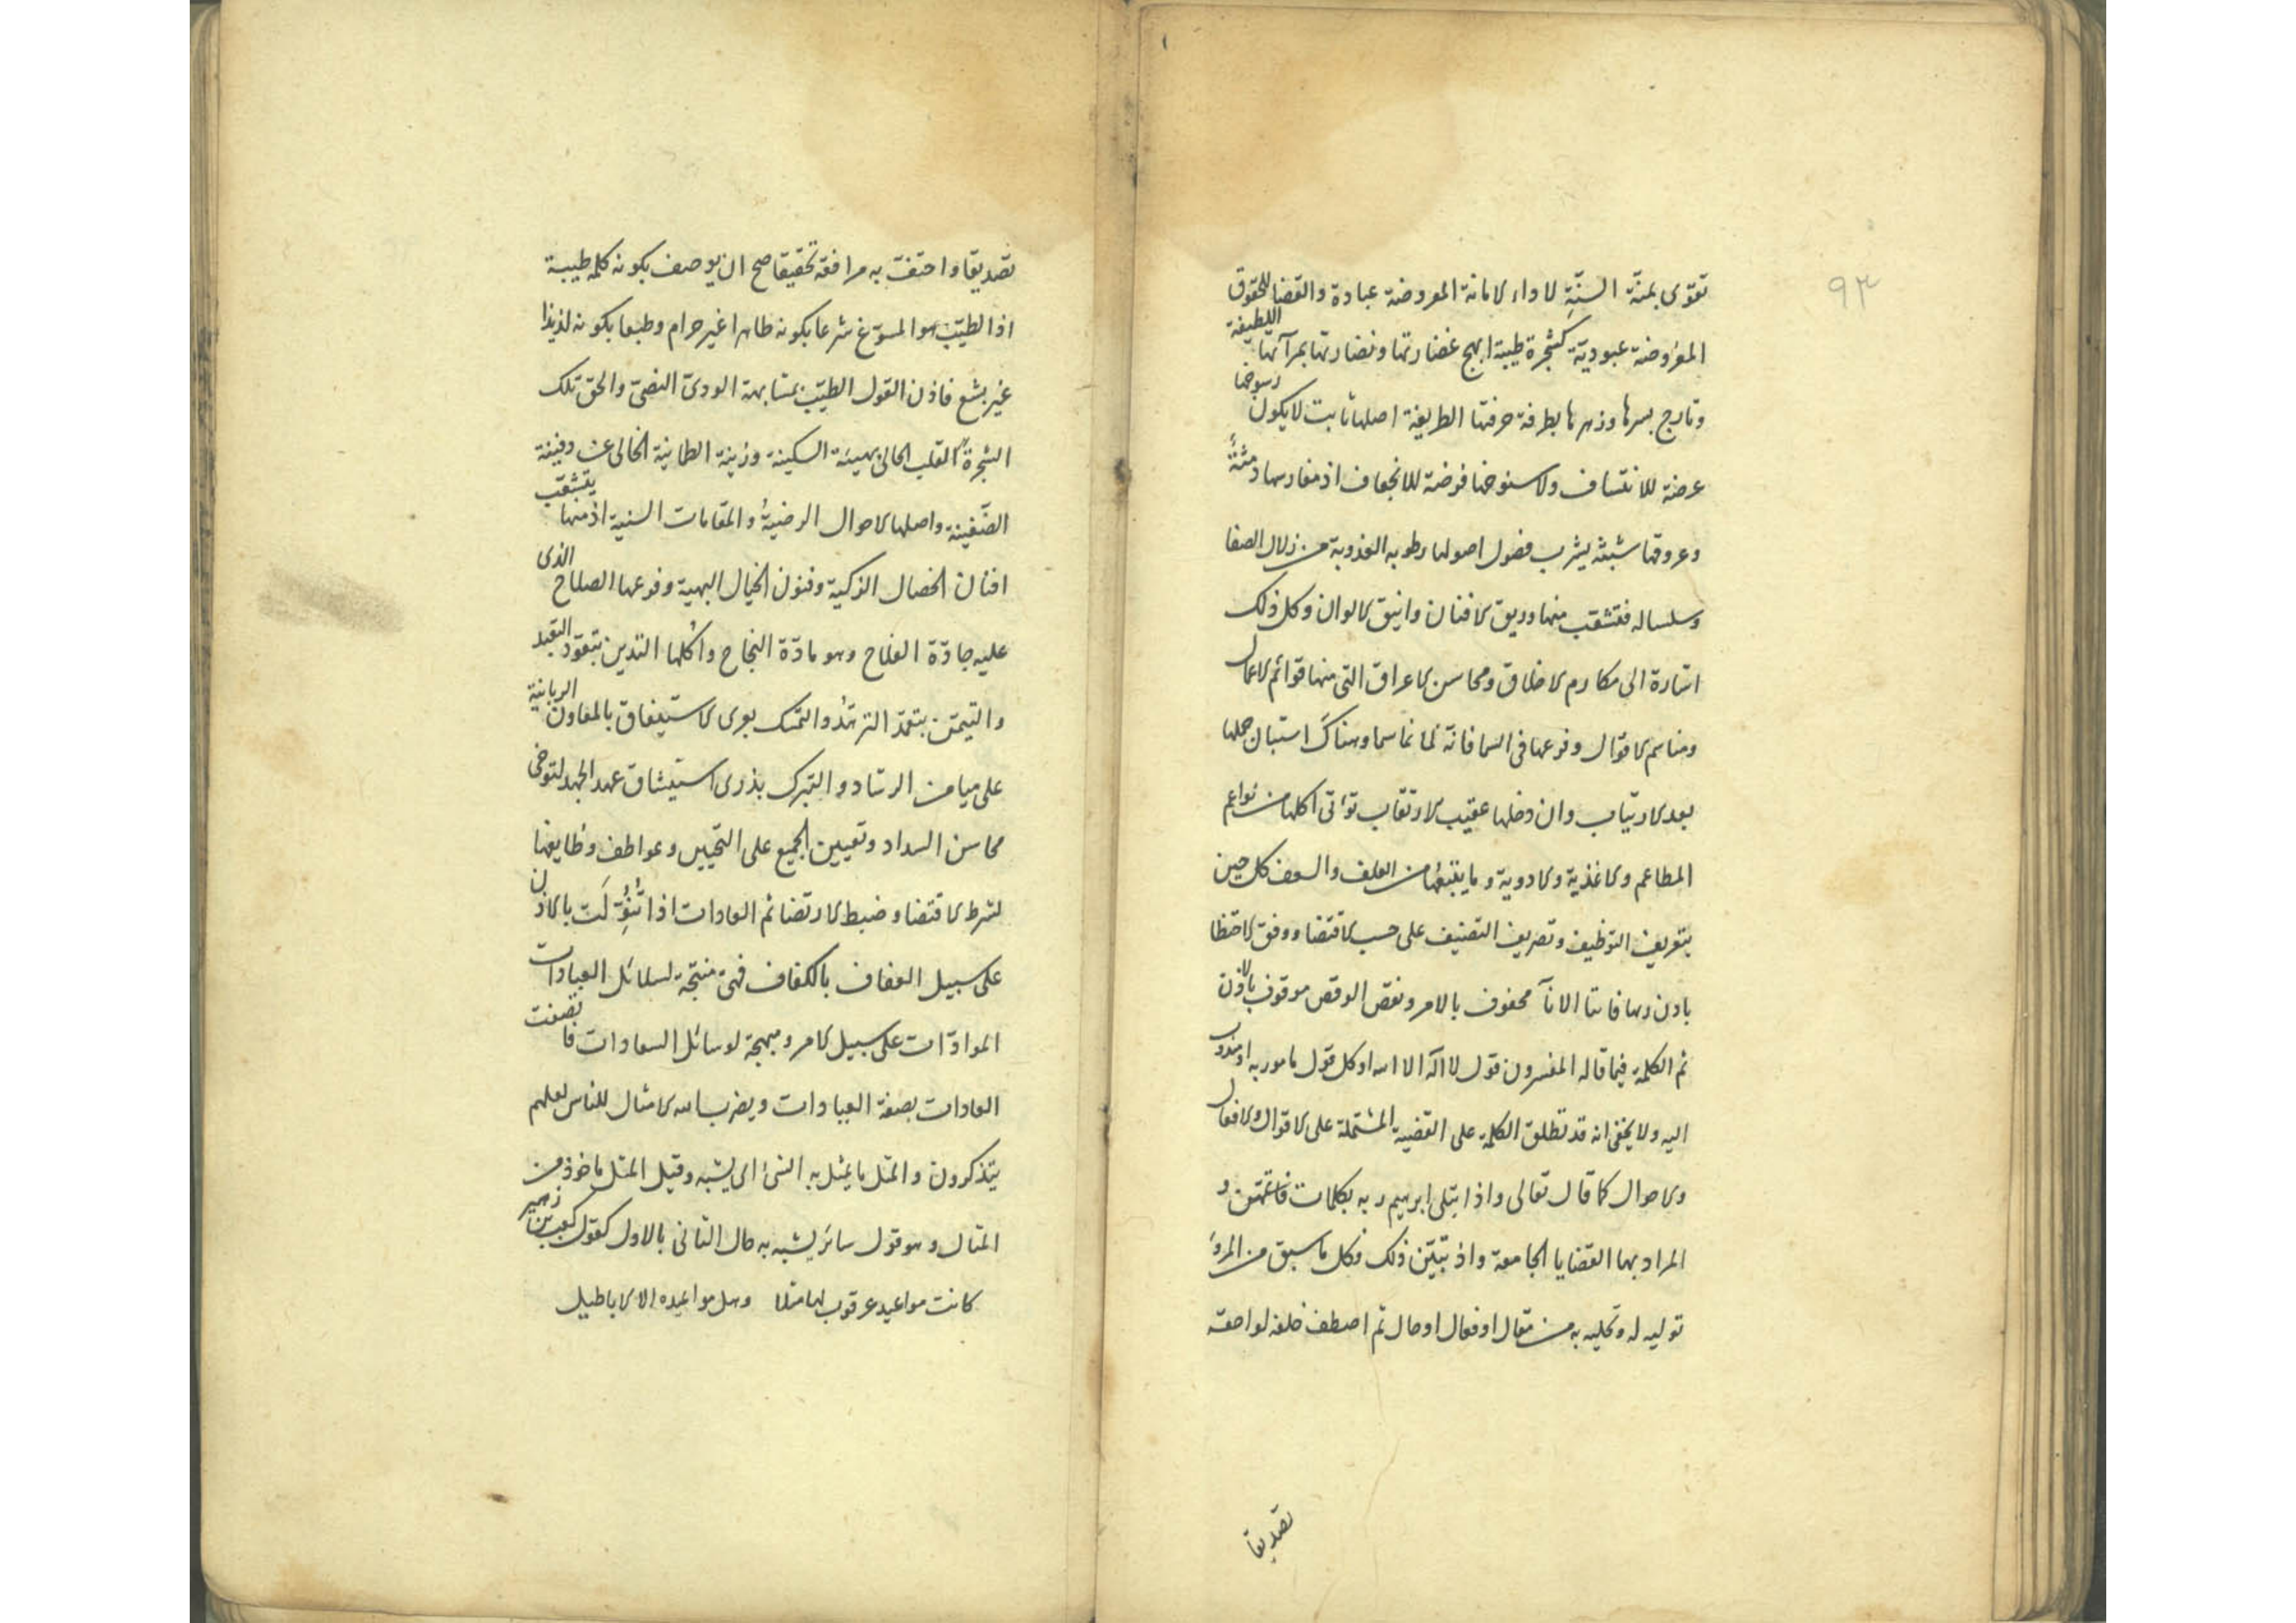 ٩٣
تقوى بمنة السنية لاداء الامانة المعروضة عبادة والقضا للحقوق
المفروضة عبودية كشجرة طيبة ابهج غضارتها ونضارتها بمرآتها اللطيفة
وتارج بسرها وزهرها بطرفة حرفتها الطريفة اصلها ثابت لا يكون رسوخها
عرضة للانتساف ولا سنوخها فرضة للانجعاف اذ مغارسها دمثة
وعروقها شبثة يشرب فضول اصولها رطوبه العذوبة من زلال الصفا
وسلساله فتشقب منها وريق الافنان وانيق الالوان وكل ذلك
اشارة الى مكارم الاخلاق ومحاسن الاعراق التى منها قوائم الاعمال
ومناسم الاقوال وفرعها فى السما فانه لما نما سما وهناك استبان حملها
بعد الارتياب وان دخلها عقيب الارتقاب تؤاتى اكلها من نواعم
المطاعم والاغذية والادوية وما يتبعها من العلف والسعف كل حين
بتعريف التوظيف وتصريف التصنيف على حسب الاقتضا ووفق الاحتظا
باذن ربها فايتا الانآ محفوف بالامر ونقص الوقص موقوف بالاذن
ثم الكلمة فيما قاله المفسرون قول لا اله الا الله او كل قول مامور به او مندوب
اليه ولا يخفى انه قد تطلق الكلمة على القضية المشتملة على الاقوال والافعال
والاحوال كما قال تعالى واذ ابتلى ابرهيم ربه بكلمات فاتمهن و
المراد بها القضايا الجامعة واذ تبين ذلك فكل ما سبق من المرء
توليه له وتحليه به من مقال او فعال او حال ثم اصطف خلفه لواحقه
تصديقا
تصديقا واحتفت به مرافقه تحقيقا صح ان يوصف بكونه كلمة طيبة
اذ الطيب هو المسوغ شرعا بكونه طاهرا غير حرام وطبعا بكونه لذيذا
غير بشع فاذن القول الطيب بمشابهة الودى النضى والحق تلك
الشجرة القلب الحالى بهيئة السكينة وزينة الطمانينة الخالى عن دفينة
الضغينة واصلها الاحوال الرضية والمقامات السنية اذ منها يتشقب
افنان الخصال الزكية وفنون الخيال البهية وفرعها الصلاح الذى
عليه جادة الفلاح وهو مادة النجاح واكلها التدين بتعود التقيد
والتيمن بتعمد التزهد والتمسك بعرى الاستيفاق بالمعاون الربانية
على ميامن الرشاد والتبرك بذرى استيشاق عهد الجهد لتوخى
محاسن السداد وتعيين الجميع على التحيين وعواطف وظايفها
لشرط الاقتضا وضبط الارتضا ثم العادات اذا تنوولت بالاذن
على سبيل العفاف بالكفاف فهى منتجة لسلائل العبادات
الموادات على سبيل الامر ومبهجة لوسائل السعادات فاتصفت
العادات بصفة العبادات ويضرب الله الامثال للناس لعلهم
يتذكرون والمثل ما يمثل به الشئ اى يشبه وقيل المثل ماخوذ من
المثال وهو قول سائر يشبه به حال الثانى بالاول كقول كعب بن زهير
كانت مواعيد عرقوب لها مثلا وهل مواعيده الا الاباطيل